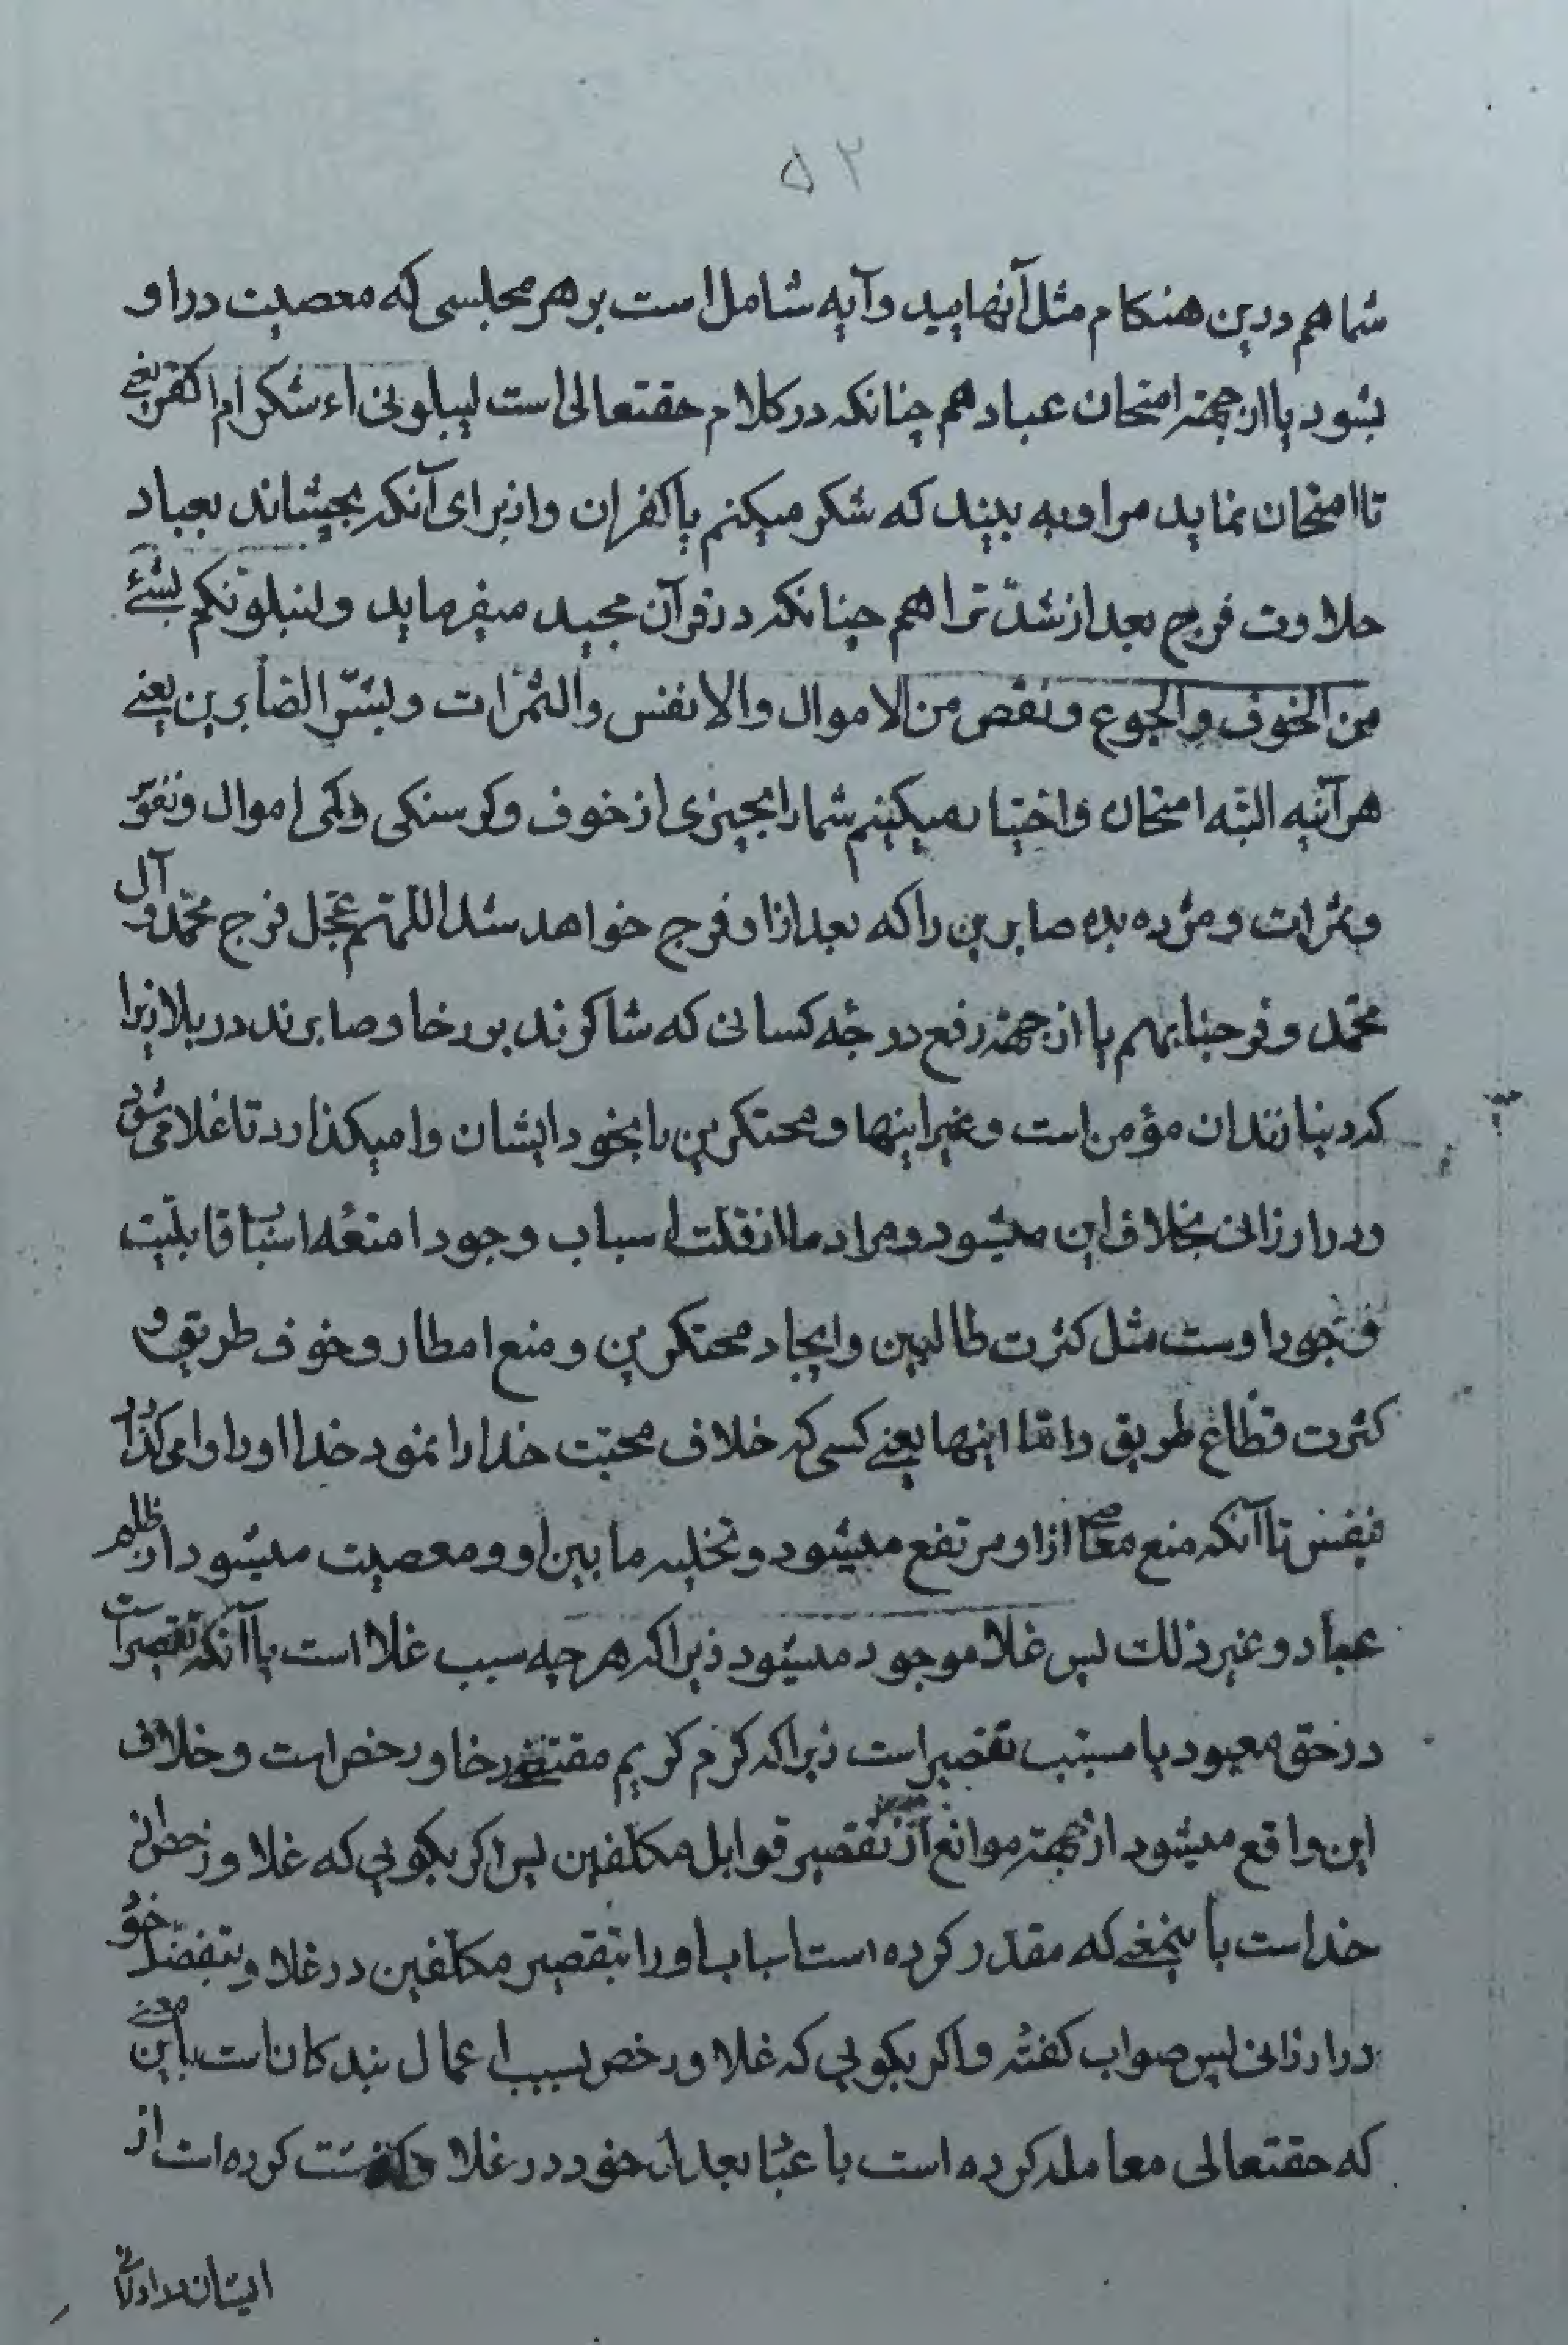 ۵۲
شما هم درین هنکام مثل آنهایید و آیه شامل است بر هر مجلسی که معصیت در او
بشود یا از جهة امتحان عباد هم چنانکه در کلام حقتعالی است لیبلونی اءشکر ام اکفر یعنے
تا امتحان نماید مرا و به بیند که شکر میکنم یا کفران و از برای آنکه بچشاند بعباد
حلاوت فرج بعد از شدّت را هم چنانکه در قرآن مجید میفرماید ولنبلونکم بشیٔ
من الخوف والجوع ونقص من الاموال والانفس والثمرات وبشّر الصابرین یعنے
هر آینه البتّه امتحان و اختیار میکنیم شما را بچیزی از خوف و کرسنکی و کمی اموال و نفوس
و ثمرات و مژده بده صابرین را که بعد از او فرج خواهد شد اللّهمّ عجّل فرج محمّد و آل
محمّد و فرجنا بهم یا از جهة رفع درجه کسانی که شاکرند بر رخا و صابرند در بلا زیرا
که دنیا زندان مؤمن است و غیر اینها و محتکرین را بخود ایشان وا میکذارد تا غلا می شود
و در ارزانی بخلاف این میشود و مراد ما از قلّت اسباب وجود امتعه اسباب قابلیّت
وجود اوست مثل کثرت طالبین و ایجاد محتکرین و منع امطار و خوف طریق و
کثرت قطّاع طریق و امّا اینها یعنے کسی که خلاف محبّت خدا را نمود خدا او را وا می کذارد
بنفس تا آنکه منع معاصے از او مرتفع میشود و تخلیه ما بین او و معصیت میشود از ظلم
عباد و غیر ذلک پس غلا موجود میشود زیرا که هر چه سبب غلا است یا آنکه تقصیر است
در حق معبود یا مسبّب تقصیر است زیرا که کرم کریم مقتضے رخا و رخص است و خلاف
این واقع میشود از جهة موانع از تقصیر قوابل مکلّفین پس اکر بکویی که غلا و رخص از
خداست باینمعنے که مقدّر کرده است اسباب او را بتقصیر مکلّفین در غلا و بتفضّل خود
در ارزانی پس صواب کفتهٔ و اکر بکویی که غلا و رخص بسبب اعمال بندکان است باین معنے
که حقتعالی معامله کرده است با عباد بعدل خود در غلا کرده است از
ایشان